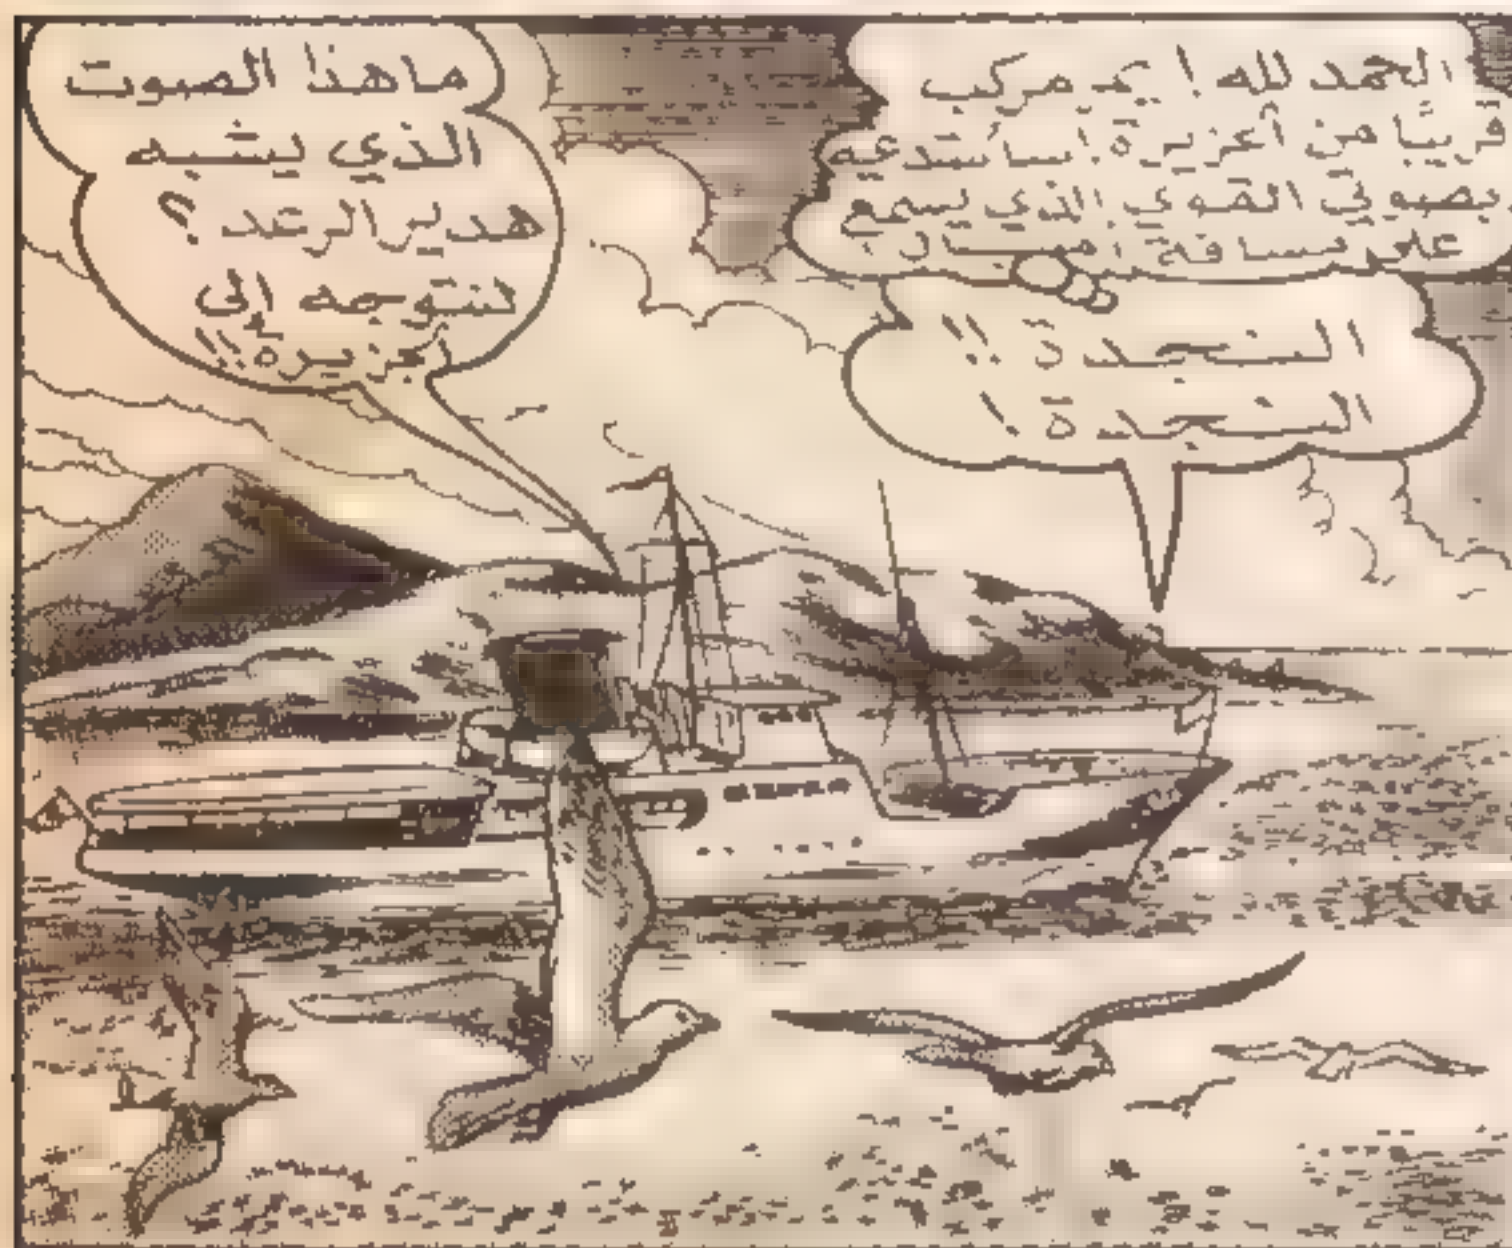 الحمد لله ! يمر مركب
قريبًا من الجزيرة. سأستدعيه
بصوتي القوي الذي يسمع
على مسافة أميال !
النجدة !!
النجدة !
ما هذا الصوت
الذي يشبه
هدير الرعد ؟
لنتوجه إلى
الجزيرة !!